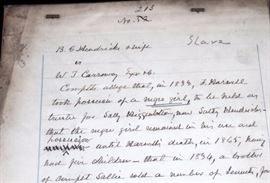 213
No. 52
Slave
B. C. Hendricks & wife
vs
W. T. Carroway, Exr &c.
Compts allege that, in 1838, J. Harrell
took possession of a negro girl, to be held as
trustee for Sally Higginbotham, now Sally Hendricks—
that the negro girl remained in his use and
possession
until Harrell's death, in 1865, having
had five children — that in 1854, a brother
of Complt Sallie sold a number of